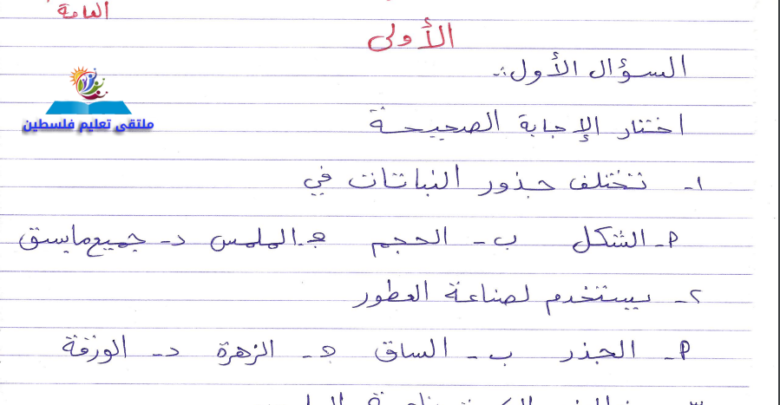 العامة
الأولى
السؤال الأول:-
ملتقى تعليم فلسطين
اختار الإجابة الصحيحة
١- تختلف جذور النباتات في
أ- الشكل ب- الحجم ج- الملمس د- جميع ماسبق
٢- يستخدم لصناعة العطور
أ- الجذر ب- الساق ج- الزهرة د- الورقة